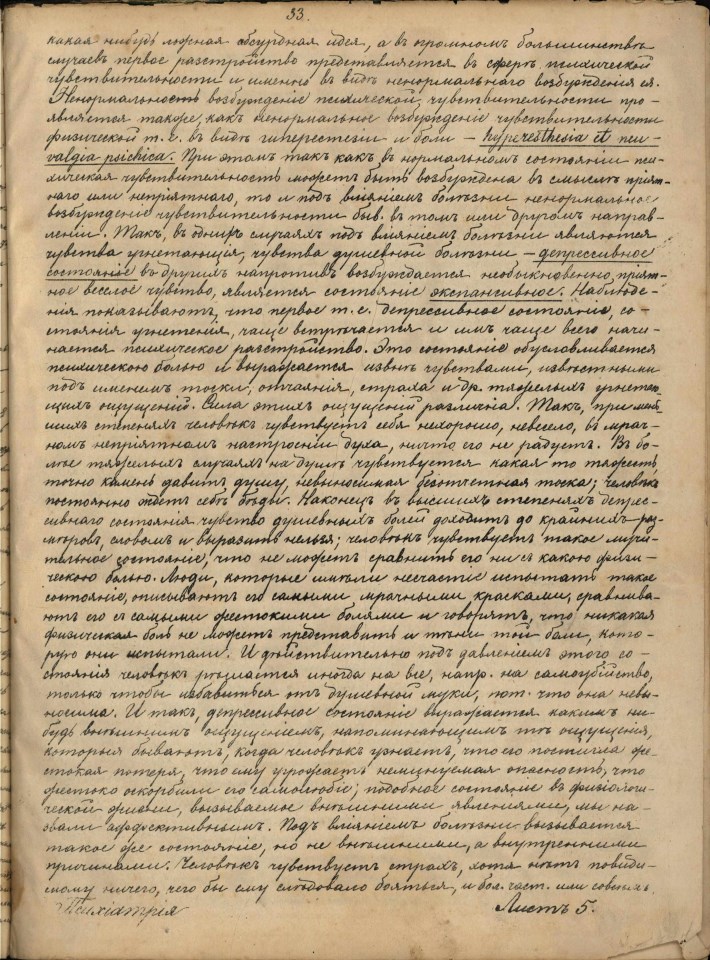 33.
какая нибудь ложная абсурдная идея, а въ громномъ большинствѣ
случаевъ первое разстройство представляется въ сферѣ психической
чувствительности и именно въ видѣ ненормальнаго возбужденія ея.
Ненормальность возбужденіе психической чувствительности про-
является также, какъ ненормальное возбужденіе чувствительности
физической т. е. въ видѣ гиперестезіи и боли – hyperesthesia et neu-
ralgia psichica. При этомъ такъ какъ въ нормальномъ состояніи пси-
хическая чувствительность можетъ быть возбуждена въ смыслѣ пріят-
наго или непріятнаго, то и подъ вліяніемъ болѣзни ненормальное
возбужденіе чувствительности быв. въ томъ или другомъ направ-
леніи. Такъ, въ однихъ случаяхъ подъ вліяніемъ болѣзни являются
чувства угнетающія, чувства душевной болѣзни – депрессивное
состояніе въ другихъ напротивъ возбуждается необыкновенно пріят-
ное веселое чувство, является состояніе экспансивное. Наблюде-
нія показываютъ, что первое т. е. депрессивное состояніе, со-
стоянія угнетенія, чаще встрѣчается и имъ чаще всего начи-
нается психическое разстройство. Это состояніе обусловливается
психическою болью и выражается извнѣ чувствами, извѣстными
подъ именемъ тоски, отчаянія, страха и др. тяжелыхъ угнетаю-
щихъ ощущеній. Сила этихъ ощущеній различна. Такъ, при мень-
шихъ степеняхъ человѣкъ чувствуетъ себя нехорошо, невесело, въ мрач-
номъ непріятномъ настроеніи духа, ничто его не радуетъ. Въ бо-
лѣе тяжелыхъ случаяхъ на душѣ чувствуется какая то тяжесть,
точно камень давитъ душу, невыносимая безотчетная тоска; человѣкъ
постоянно ждетъ себѣ бѣды. Наконецъ въ высшихъ степеняхъ депрес-
сивнаго состоянія чувство душевныхъ болей доходитъ до крайнихъ раз-
мѣровъ, словомъ и выразить нельзя; человѣкъ чувствуетъ такое мучи-
тельное состояніе, что не можетъ сравнить его ни съ какою физи-
ческою болью. Люди, которые имѣли несчастіе испытать такое
состояніе, описываютъ его самыми мрачными красками, сравнива-
ютъ его съ самыми жестокими болями и говорятъ, что никакая
физическая боль не можетъ представить и тѣни той боли, кото-
рую они испытали. И дѣйствительно подъ давленіемъ этого со-
стоянія человѣкъ рѣшается иногда на все, напр. на самоубійство,
только чтобы избавиться отъ душевной муки, пот. что она невы-
носима. И такъ, депрессивное состояніе выражается какимъ ни-
будь внѣшнимъ ощущеніемъ, напоминающимъ тѣ ощущенія,
которыя бываютъ, когда человѣкъ узнаетъ, что его постигла же-
стокая потеря, что ему угрожаетъ неминуемая опасность, что
жестоко оскорбили его самолюбіе; подобное состояніе въ физіологи-
ческой жизни, вызываемое внѣшними явленіями, мы на-
звали аффективнымъ. Подъ вліяніемъ болѣзни вызывается
такое же состояніе, но не внѣшними, а внутренними
причинами. Человѣкъ чувствуетъ страхъ, хотя нѣтъ повиди-
мому ничего, чего бы ему слѣдовало бояться, и бол. част. или совсѣмъ
Психіатрія Листъ 5.